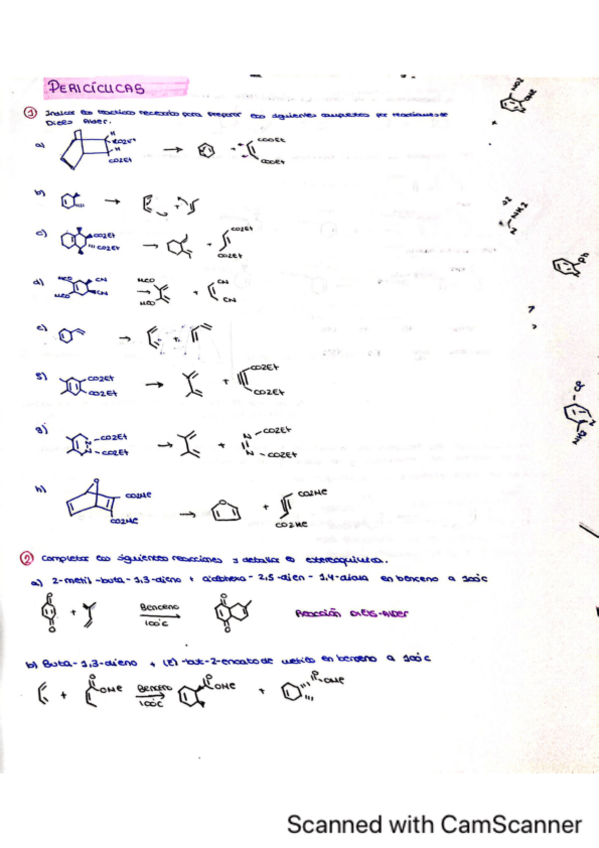 PERICÍCLICAS
① Indicar los reactivos necesarios para preparar los siguientes compuestos por reacciones de
Diels Alder.
a) H CO2Et H CO2Et → + COOEt COOEt
b) → +
c) CO2Et CO2Et → + CO2Et CO2Et
d) MeO MeO CN CN → MeO MeO + CN CN
e) → +
f) CO2Et CO2Et → + CO2Et CO2Et
g) N-CO2Et N-CO2Et → + N-CO2Et N-CO2Et
h) O CO2Me CO2Me → O + CO2Me CO2Me
② Completar las siguientes reacciones y detallar la estereoquímica.
a) 2-metil-buta-1,3-dieno + ciclohexa-2,5-dien-1,4-diona en benceno a 100°C
O O + Benceno 100°C O O Reacción Diels-Alder
b) Buta-1,3-dieno + (E)-but-2-enoato de metilo en benceno a 100°C
+ O OMe Benceno 100°C O OMe + O OMe
NO2
NH2
N
Ph
Cl
N
NH2
Scanned with CamScanner